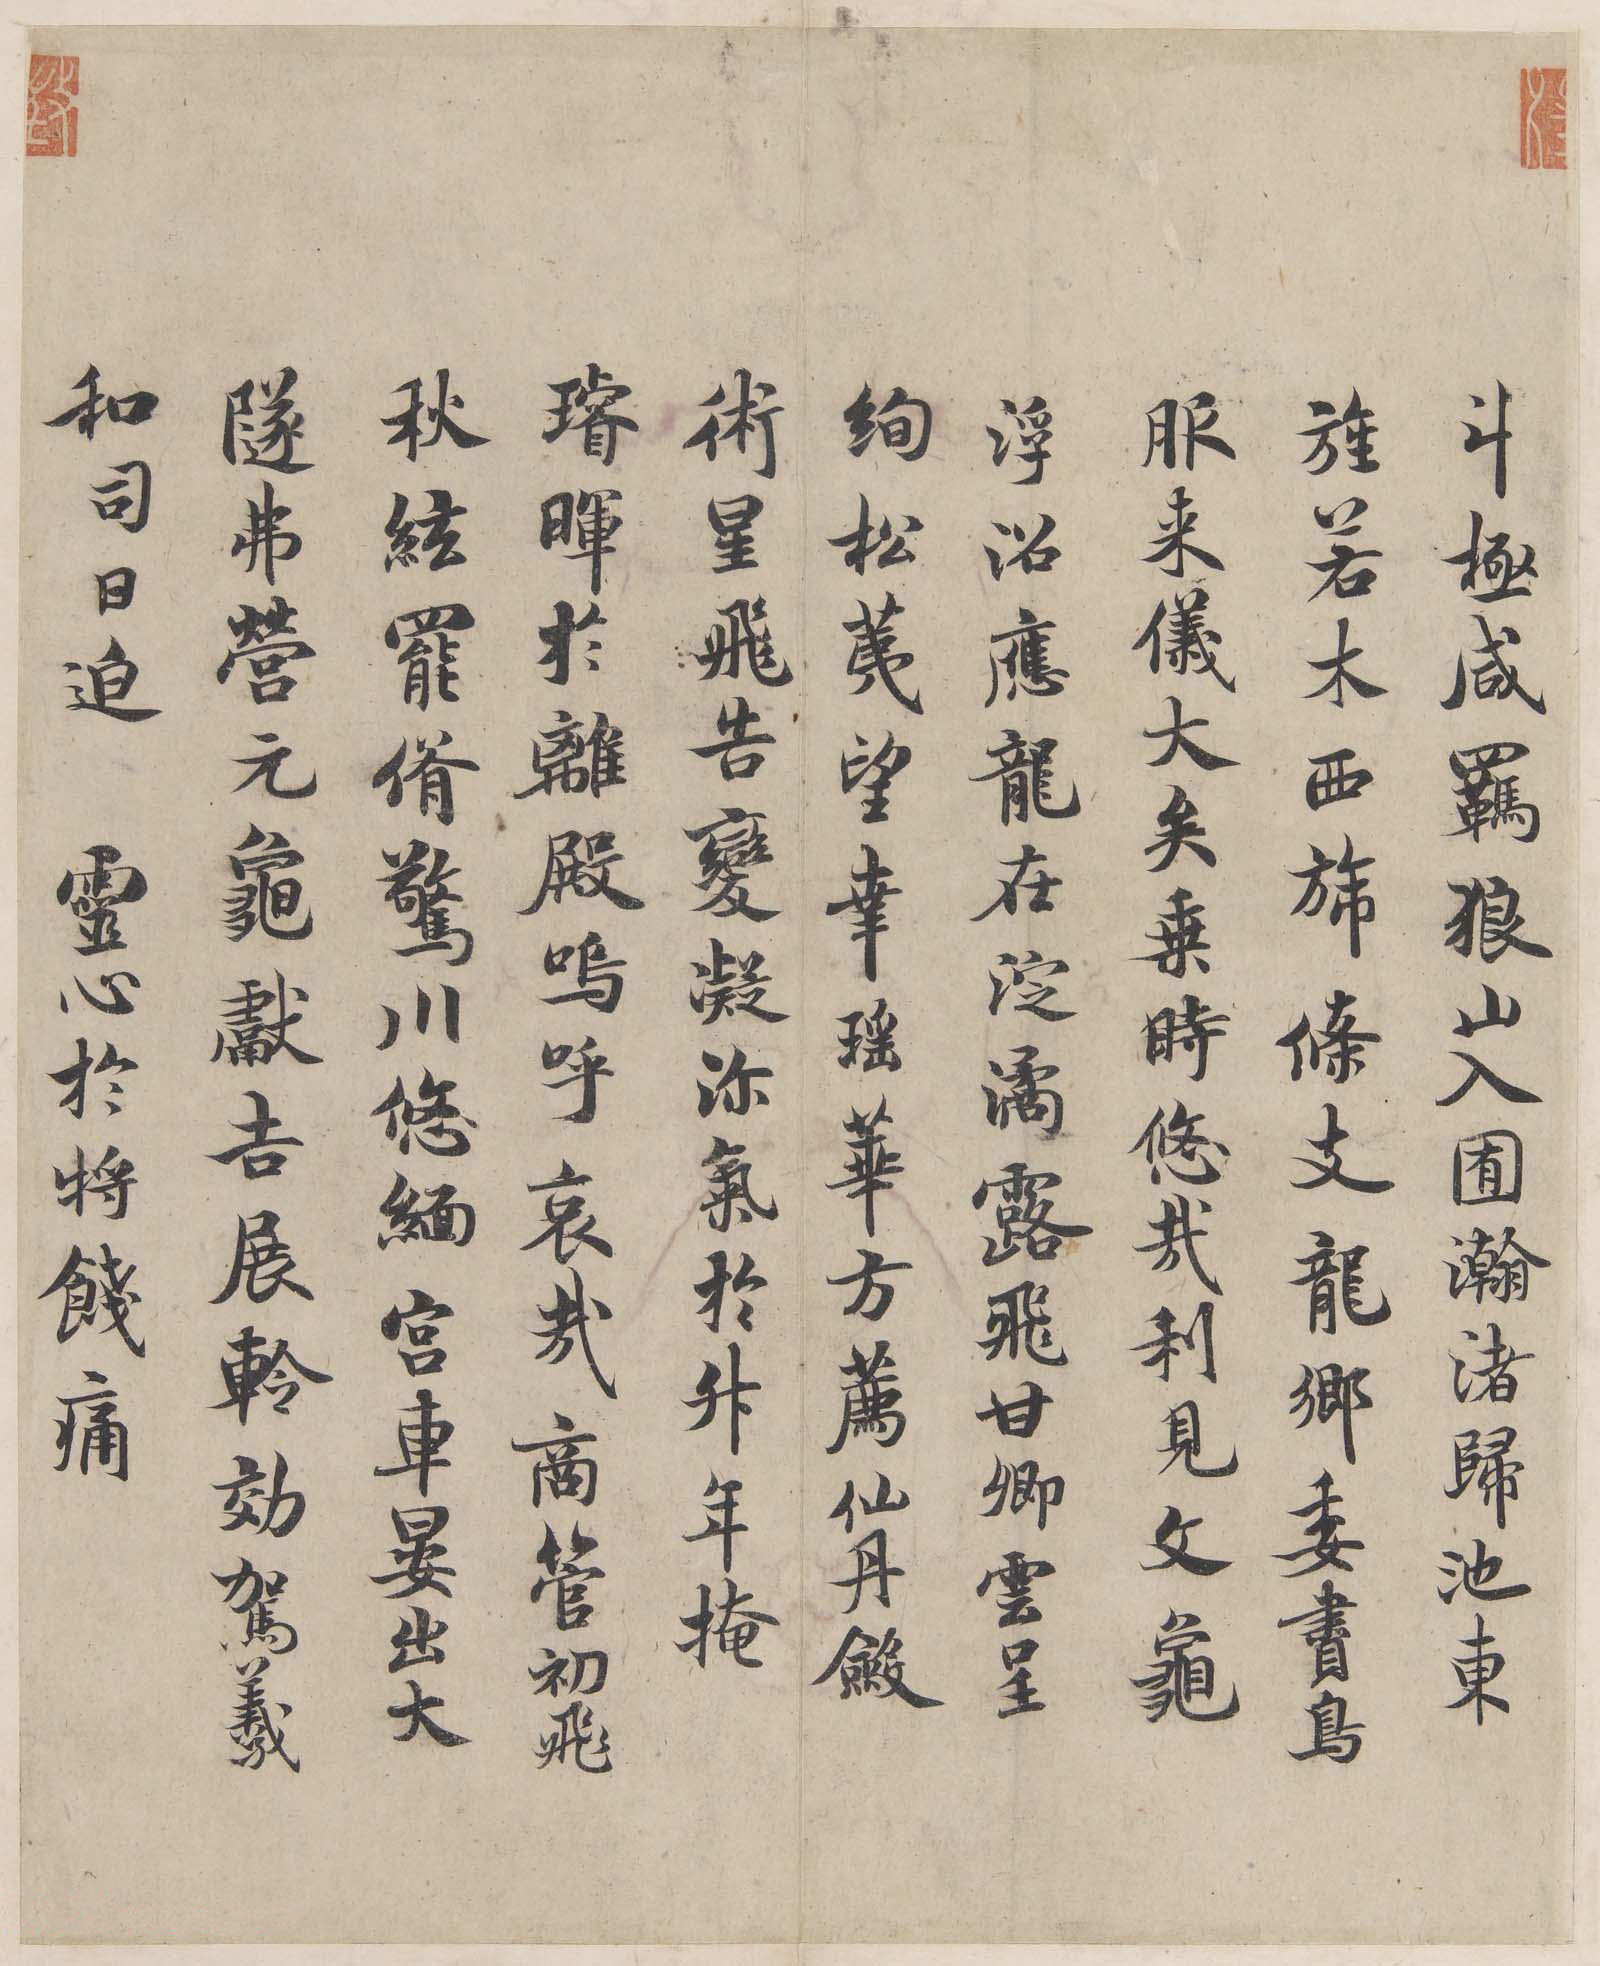 斗極咸羈狼山入囿瀚渚歸池東
旌若木西旆條支龍鄉委賮鳥
服来儀大矣乗時悠哉利見文龜
浮沼應龍在淀潏露飛甘卿雲呈
絢松荑望幸瑤華方薦仙丹斂
術星飛告變凝沴氣於升年掩
璿暉於離殿嗚呼哀哉商管初飛
秋絃罷佾驚川悠緬宮車晏出大
隧弗營元龜獻吉展軨効駕羲
和司日迫靈心於将餞痛